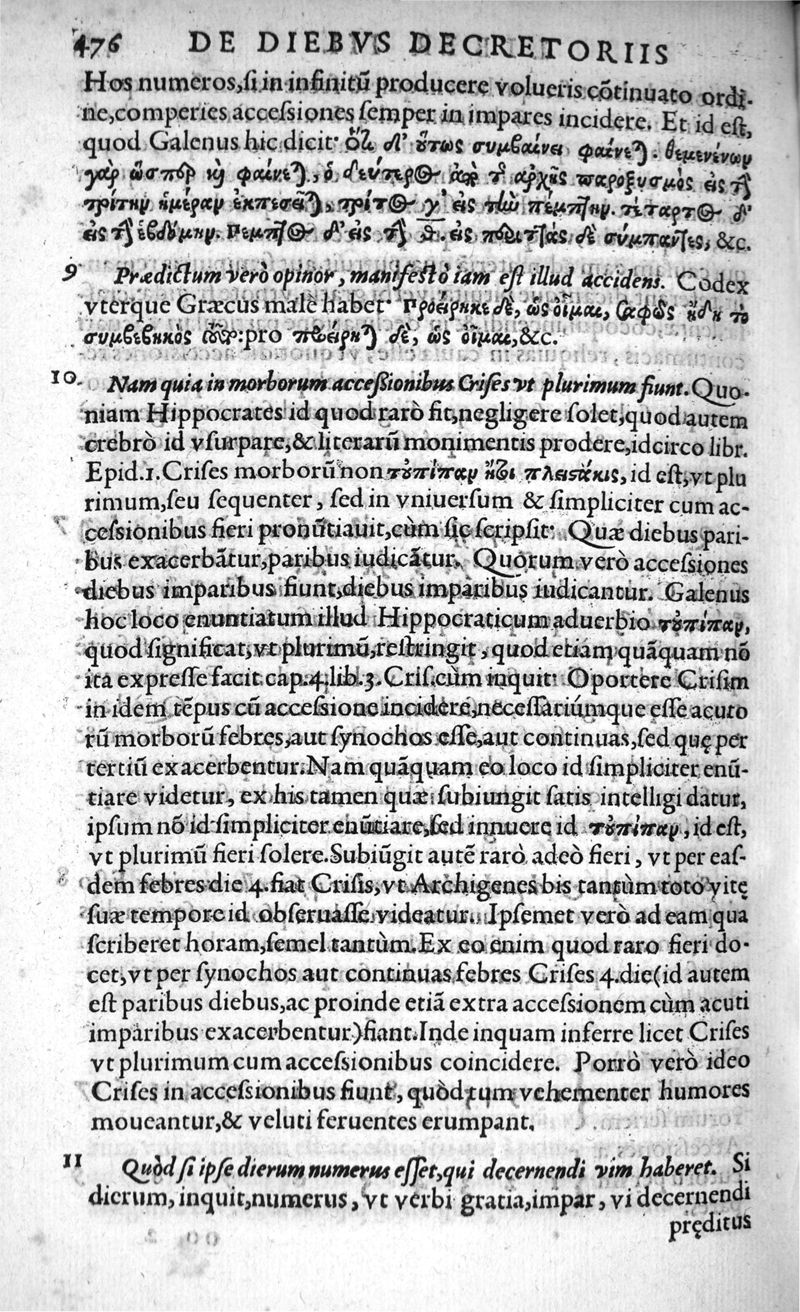 476 DE DIEBVS DECRETORIIS
Hos numeros, si in infinitũ producere volueris cõtinuato ordi-
ne, comperies accessiones semper in impares incidere. Et id est,
quod Galenus hic dicit: ὅτι δ' οὕτως συμβαίνει φαίνεται.
γὰρ ὥσπερ καὶ φαίνεται, ὁ δεύτερος ἀπὸ τῆς ἀρχῆς παροξυσμὸς εἰς τὴν
τρίτην ἡμέραν ἐκπεσεῖται, τρίτος γ' εἰς τὴν πέμπτην. τέταρτος δ'
εἰς τὴν ἑβδόμην. πέμπτος δ' εἰς τὴν θ. εἰς περιττὰς δὲ σύμπαντες, &c.
9 Prædictum verò opinor, manifestò iam est illud accidens. Codex
vterque Græcus malè habet: προείρηκε δὲ, ὡς οἶμαι, σαφῶς ἤδη τὸ
συμβεβηκὸς :pro προείρηται δὲ, ὡς οἶμαι, &c.
10 Nam quia in morborum accessionibus Crises vt plurimum fiunt. Quo-
niam Hippocrates id quod rarò fit, negligere solet, quod autem
crebrò id vsurpare, & literarũ monimentis prodere, idcirco libr.
Epid. 1. Crises morborũ non τοὐπίπαν πλειστάκις, id est, vt plu
rimum, seu sequenter, sed in vniuersum & simpliciter cum ac-
cessionibus fieri pronũtiauit, cùm sic scripsit: Quæ diebus pari-
bus exacerbãtur, paribus iudicãtur. Quorum verò accessiones
diebus imparibus fiunt, diebus imparibus iudicantur. Galenus
hoc loco enuntiatum illud Hippocraticum aduerbio τοὐπίπαν,
quod significat, vt plurimũ, restringit, quod etiam quãquam nõ
ita expresse facit cap. 4. lib. 3. Cris. cùm inquit: Oportere Crisim
in idem tẽpus cũ accessione incidere, necessariúmque esse acuto
rũ morborũ febres, aut synochos esse, aut continuas, sed quę per
tertiũ exacerbentur. Nam quãquam eo loco id simpliciter enũ-
tiare videtur, ex his tamen quæ subiungit satis intelligi datur,
ipsum nõ id simpliciter enũtiare, sed innuere id τοὐπίπαν, id est,
vt plurimũ fieri solere. Subiũgit autẽ rarò adeò fieri, vt per eas-
dem febres die 4. fiat Crisis, vt Archigenes bis tantùm toto vitę
suæ tempore id obseruasse videatur. Ipsemet verò ad eam qua
scriberet horam, semel tantùm. Ex eo enim quod raro fieri do-
cet, vt per synochos aut continuas febres Crises 4. die (id autem
est paribus diebus, ac proinde etiã extra accessionem cùm acuti
imparibus exacerbentur) fiant. Inde inquam inferre licet Crises
vt plurimum cum accessionibus coincidere. Porrò verò ideo
Crises in accessionibus fiunt, quòd tum vehementer humores
moueantur, & veluti feruentes erumpant.
11 Quòd si ipse dierum numerus esset, qui decernendi vim haberet. Si
dierum, inquit, numerus, vt verbi gratia, impar, vi decernendi
pręditus